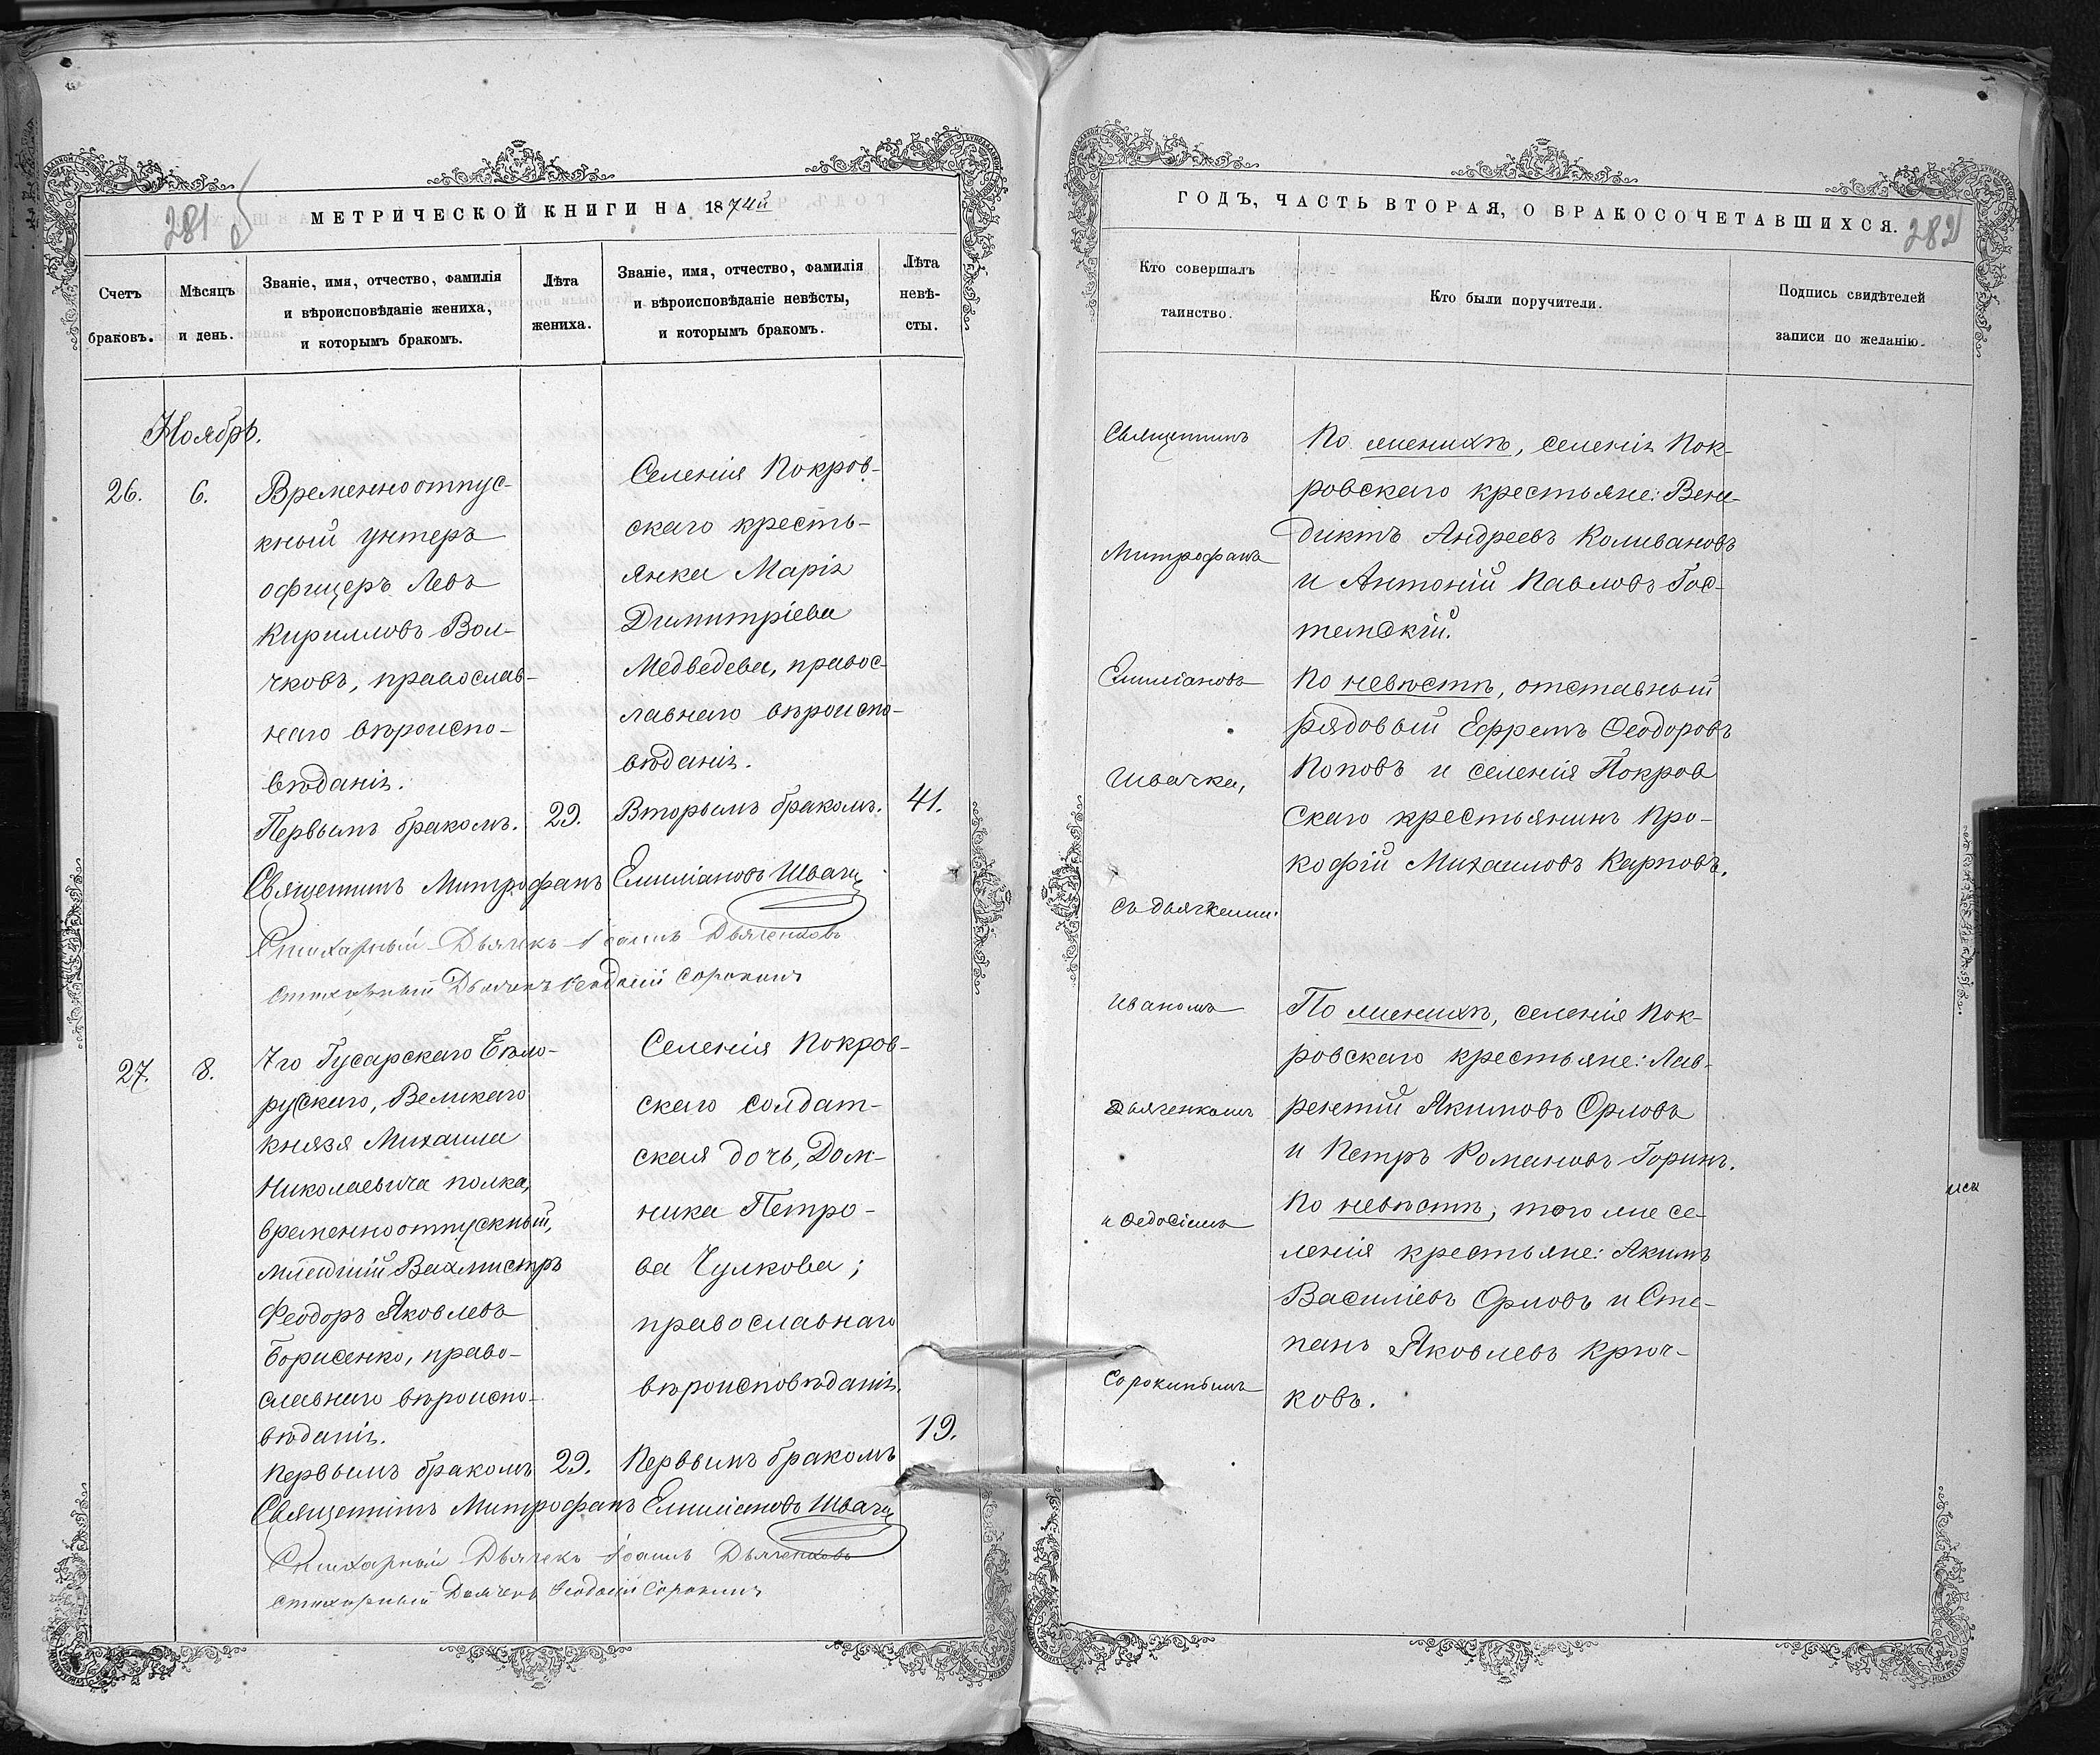 281
МЕТРИЧЕСКОЙ КНИГИ НА 1874й
Счетъ
браковъ.
Мѣсяцъ
и день.
Званіе, имя, отчество, фамилія
и вѣроисповѣданіе жениха,
и которымъ бракомъ.
Лѣта
жениха.
Званіе, имя, отчество, фамилія
и вѣроисповѣданіе невѣсты,
и которымъ бракомъ.
Лѣта
невѣ-
сты.
Ноябрь.
26.
6.
Временноотпус-
кный унтеръ
офицеръ Левъ
Кирилловъ Вол-
чковъ, православ-
наго вѣроиспо-
вѣданія.
Первымъ бракомъ.
29.
Селенія Покров-
скаго кресть-
янка Марія
Димитріева
Медведева, правос-
лавнаго вѣроиспо-
вѣданія.
Вторымъ бракомъ.
41.
Священникъ Митрофанъ Емиліановъ Швачка
Стихарный Дьячекъ Іоаннъ Дьяченковъ
Стихарный Дьячекъ Ѳеодосій Сорокинъ
27.
8.
7го Гусарскаго Бѣло-
русскаго, Великаго
князя Михаила
Николаевича полка,
временноотпускный,
младшій Вахмистръ
Феодоръ Яковлевъ
Борисенко, право-
славнаго вѣроиспо-
вѣданія.
Первымъ бракомъ
29.
Селенія Покров-
скаго солдат-
ская дочь, Дом-
ника Петро-
ва Чулкова;
православнаго
вѣроисповѣданія.
Первымъ бракомъ
19.
Священникъ Митрофанъ Емиліановъ Швачка
Стихарный Дьячекъ Іоаннъ Дьяченковъ
Стихарный Дьячекъ Ѳеодосій Сорокинъ
ГОДЪ, ЧАСТЬ ВТОРАЯ, О БРАКОСОЧЕТАВШИХСЯ.
282
Кто совершалъ
таинство.
Кто были поручители.
Подпись свидѣтелей
записи по желанію.
Священникъ
Митрофанъ
Емиліановъ
Швачка,
съ дьячками:
Иваномъ
Дьяченкомъ
и Ѳедосіемъ
Сорокинымъ
По женихѣ, селенія Пок-
ровскаго крестьяне: Вени-
диктъ Андреевъ Коливановъ
и Антоній Павловъ Гос-
По невѣстѣ, отставный
рядовый Ефремъ Ѳеодоровъ
Поповъ и селенія Покров
скаго крестьянинъ Про-
кофій Михаиловъ Карповъ.
По женихѣ, селенія Пок-
ровскаго крестьяне: Лав-
рентій Якимовъ Орловъ
и Петръ Романовъ Горинъ.
По невѣстѣ, того же се-
ленія крестьяне: Якимъ
Василіевъ Орловъ и Сте-
панъ Яковлевъ Крюч-
ковъ.